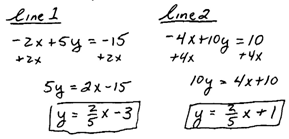 line 1
-2x+5y=-15
+2x +2x
5y=2x-15
y=2/5x-3
line 2
-4x+10y=10
+4x +4x
10y=4x+10
y=2/5x+1